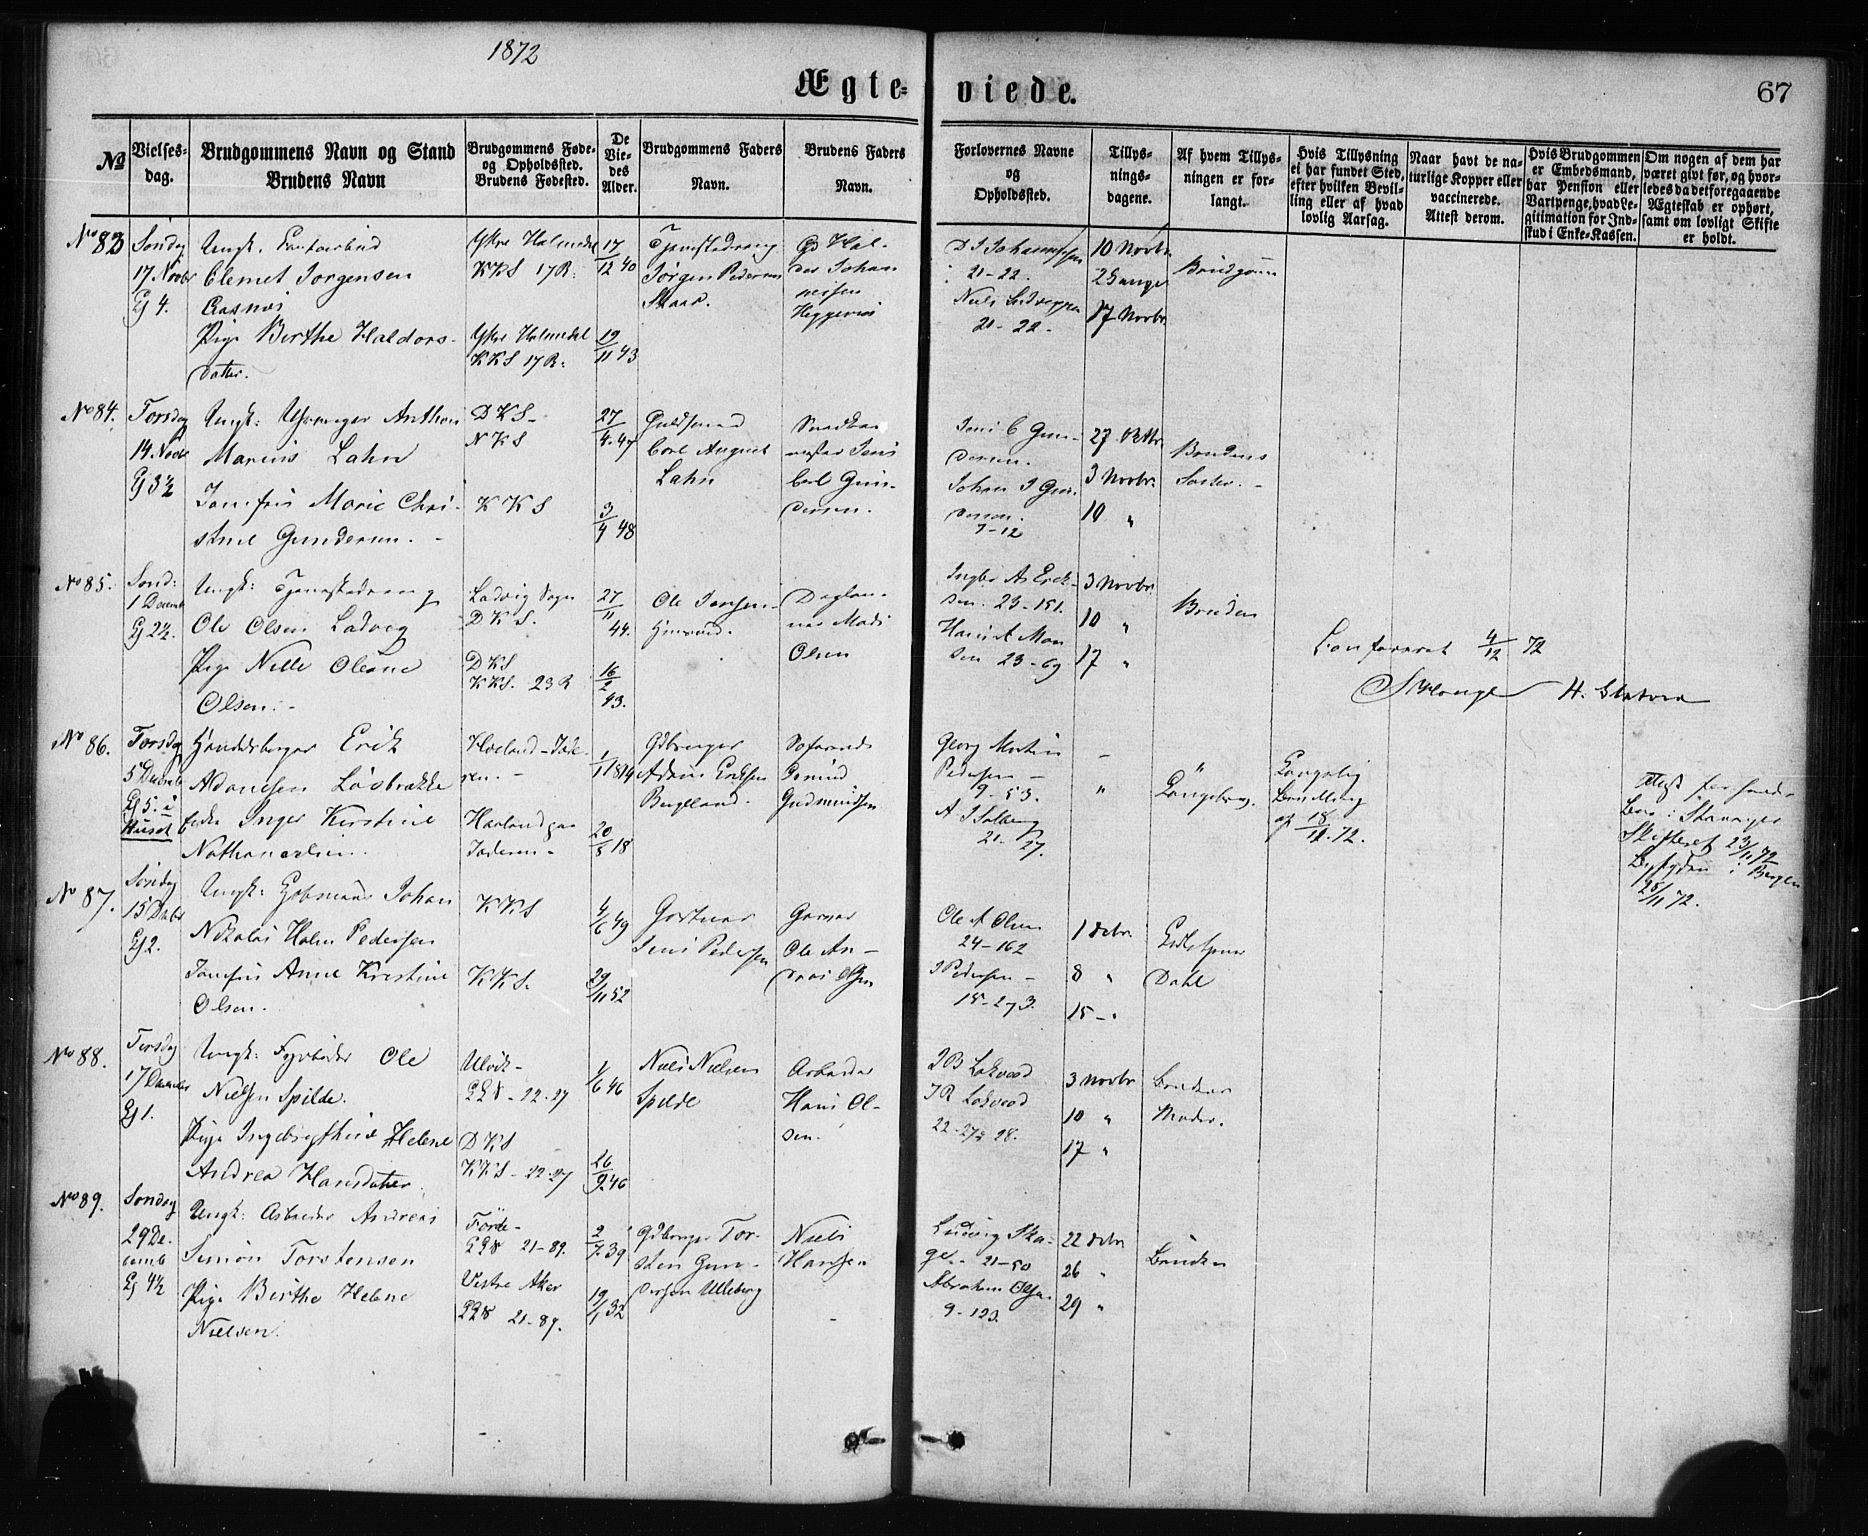 1872
Ægte-
viede.
67
No
Vielses-
dag.
Brudgommens Navn og Stand
Brudens Navn
Brudgommens Føde-
og Opholdssted.
Brudens Fødested.
De
Vie-
des
Alder.
Brudgommens Faders
Navn.
Brudens Faders
Navn.
Forlovernes Navne
og
Opholdssted.
Tillys-
nings-
dagene.
Af hvem Tillys-
ningen er for-
langt.
Hvis Tillysning
ei har fundet Sted,
efter hvilken Bevil-
ling eller af hvad
lovlig Aarsag.
Naar havt de na-
turlige Kopper eller
vaccinerede.
Attest derom.
Hvis Brudgommen
er Embedsmand,
har Pension eller
Vartpenge, hvad Le-
gitimation for Ind-
skud i Enke-Kassen.
Om nogen af dem har
været givt før, og hvor-
ledes da det foregaaende
Ægteskab er ophørt,
samt om lovligt Skifte
er holdt.
No 83
Søndag
17. Novbr
Kl 4.
Ungk.
Clemet Jørgensen
Pige Birthe Haldors-
datter.
Ytre Holmedal
KKS 17 R.
Ytre Holmedal
KKS 17 R.
17/12 40
19/11 43
Tjenestedreng
Jørgen Pedersen
Hal-
dor Johan
nessen
D J Johannessen
21-22.
Niels
21-22.
10 Novbr.
2 Gange
17 Novbr.
Brudgom
No 84.
Torsdag
14. Novbr
Kl 3½
Ungk: Uhrmager Anthon
Marius Lahn
Jomfru Marie Chri-
stine Gundersen. -
DKS-
NKS
KKS
27/4 47
3/9 48
Guldsmed
Carl August
Lahn
Snedker
mester Jens
Carl Gun-
dersen.
Jens C Gun-
dersen.
Johan J Gun-
dersen.
7-12
27. Oktbr.
3 Novbr.
10 "
Brudens
Søster. -
No 85.
Sønd:
1 Decemb
Kl 2½.
Ungk: Tjenestedreng
Ole Olsen Ladvig
Pige Nille Oleane
Olsen. -
Ladvig Sogn
DKS.
DKS
KKS. 23 R
27/11 44.
16/2 43.
Ole Jensen
Husmand.
Dagløn-
ner Mads
Olsen
Erik-
sen. 23-151.
Hans A Mon
sen 23-69
3 Novbr
10 "
17 "
Bruden
Confereret 4/12 72
No 86.
Torsdag
5 Decemb
Kl 5. i
Huset
Handelsborger Erik
Adamsen Løsbrække
Enke Inger Kirstine
Nathanaelsen.
Høeland - Jæde-
ren. -
Haaland paa
Jæderen -
1/1 1814
20/8 18
Gdbruger
Adam Eriksen
Bergland.
Gudmundsen
Georg Martin
Pedersen -
9-53.
A J Solberg
21-27.
-
"
"
Kongelig
Bevilling
af 18/11. 72.
Attest fra
i Stavanger
Skifteret 23/11 72
Byfogden i Bergen
25/11 72.
No 87.
Søndag
15 Decbr
Kl 2.
Ungk: Johan
Nikolai Holm Pedersen
Jomfru Anne Kristine
Olsen.
KKS
KKS.
4/6 49
29/11 52
Gartner
Jens Pedersen
Garver
Ole An-
dreas Olsen
Ole A Olsen
24-162
J Pedersen -
15-273.
1 Decbr.
8 "
15 - "
Dahl
No 88.
Tirsdag
17 December
Kl 1.
Ungk: Fyrbøder Ole
Nielsen Spilde.
Pige Ingebrigthine Helene
Andrea Hansdatter
Ulvik-
22-27
DKS
KKS - 22-27
1/6 46
26/9 46
Niels Nielsen
Spilde
Arbeider
Hans Ol-
sen.
J B Løkvood
J R Løkvood
22-27 & 28.
3 Novbr
10 "
17 "
Brudens
Moder.
No 89.
Søndag
29 De-
cemb
Kl 4½
Ungk: Arbeider Andreas
Simon Torstensen
Pige Birthe Helene
Nielsen.
Førde-
21-89.
Vestre Aker
21-89.
2/7 39
19/1 32
Gdbruger Tor-
sten Gun-
dersen Ulleberg
Niels
Hansen
-
Ludvig Ska-
ge - 21-50
Abraham Olsen
9-123.
22 Decbr
26 "
29 "
Bruden